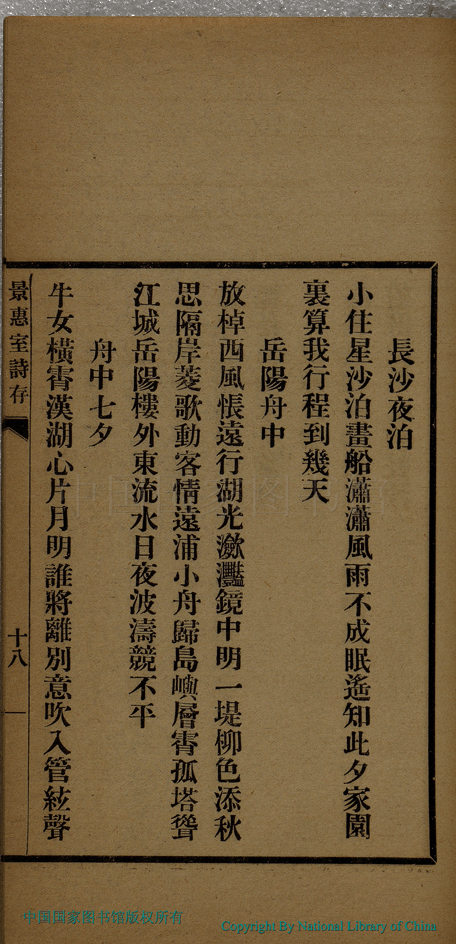 長沙夜泊
小住星沙泊畫船瀟瀟風雨不成眠遙知此夕家園
裏算我行程到幾天
岳陽舟中
放棹西風悵遠行湖光瀲灩鏡中明一堤柳色添秋
思隔岸菱歌動客情遠浦小舟歸島嶼層霄孤塔聳
江城岳陽樓外東流水日夜波濤競不平
舟中七夕
牛女橫霄漢湖心片月明誰將離別意吹入管絃聲
景惠室詩存
十八
中国国家图书馆版权所有
Copyright By National Library of China